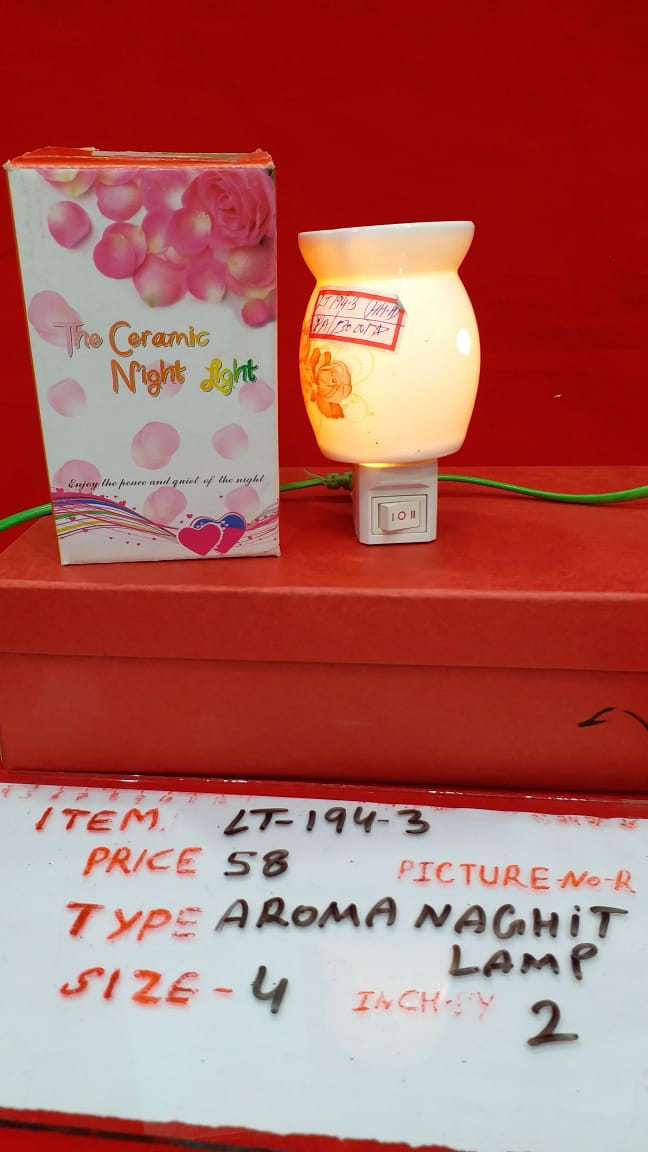 The Ceramic
Night Light
Enjoy the peace and quiet of the night
LT 194-3
I O II
ITEM. LT-194-3
PRICE 58
PICTURE-No-R
TYPE AROMA NAGHiT
LAMP
SIZE-4 INCH-BY 2